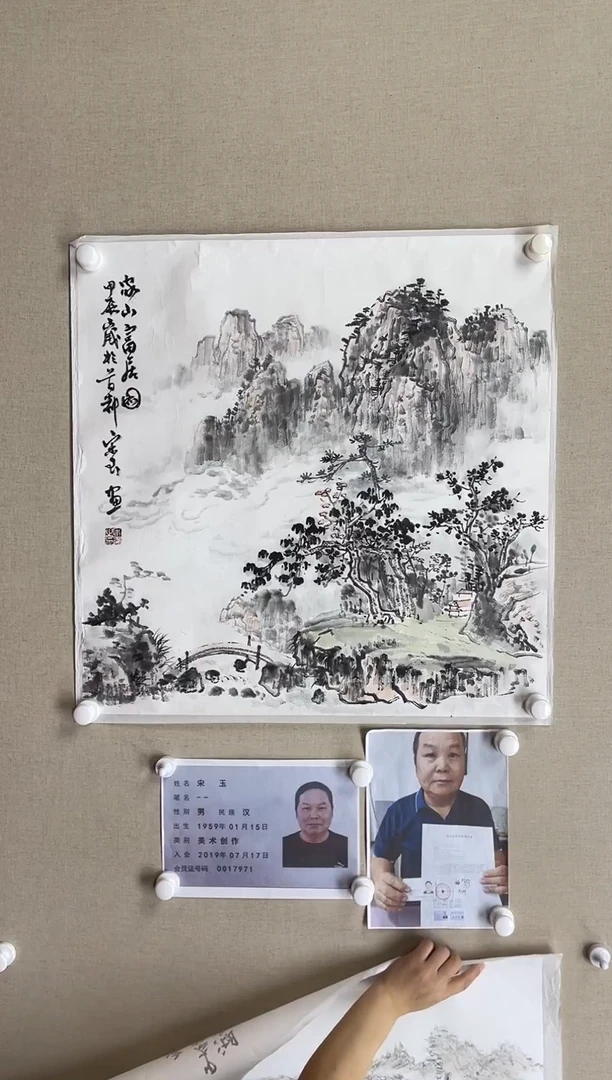 家山富居图
甲辰岁於首都 宋玉 画
姓名 宋 玉
笔名 --
性别 男 民族 汉
出生 1959年01月15日
类别 美术创作
入会 2019年07月17日
会员证号码 0017971